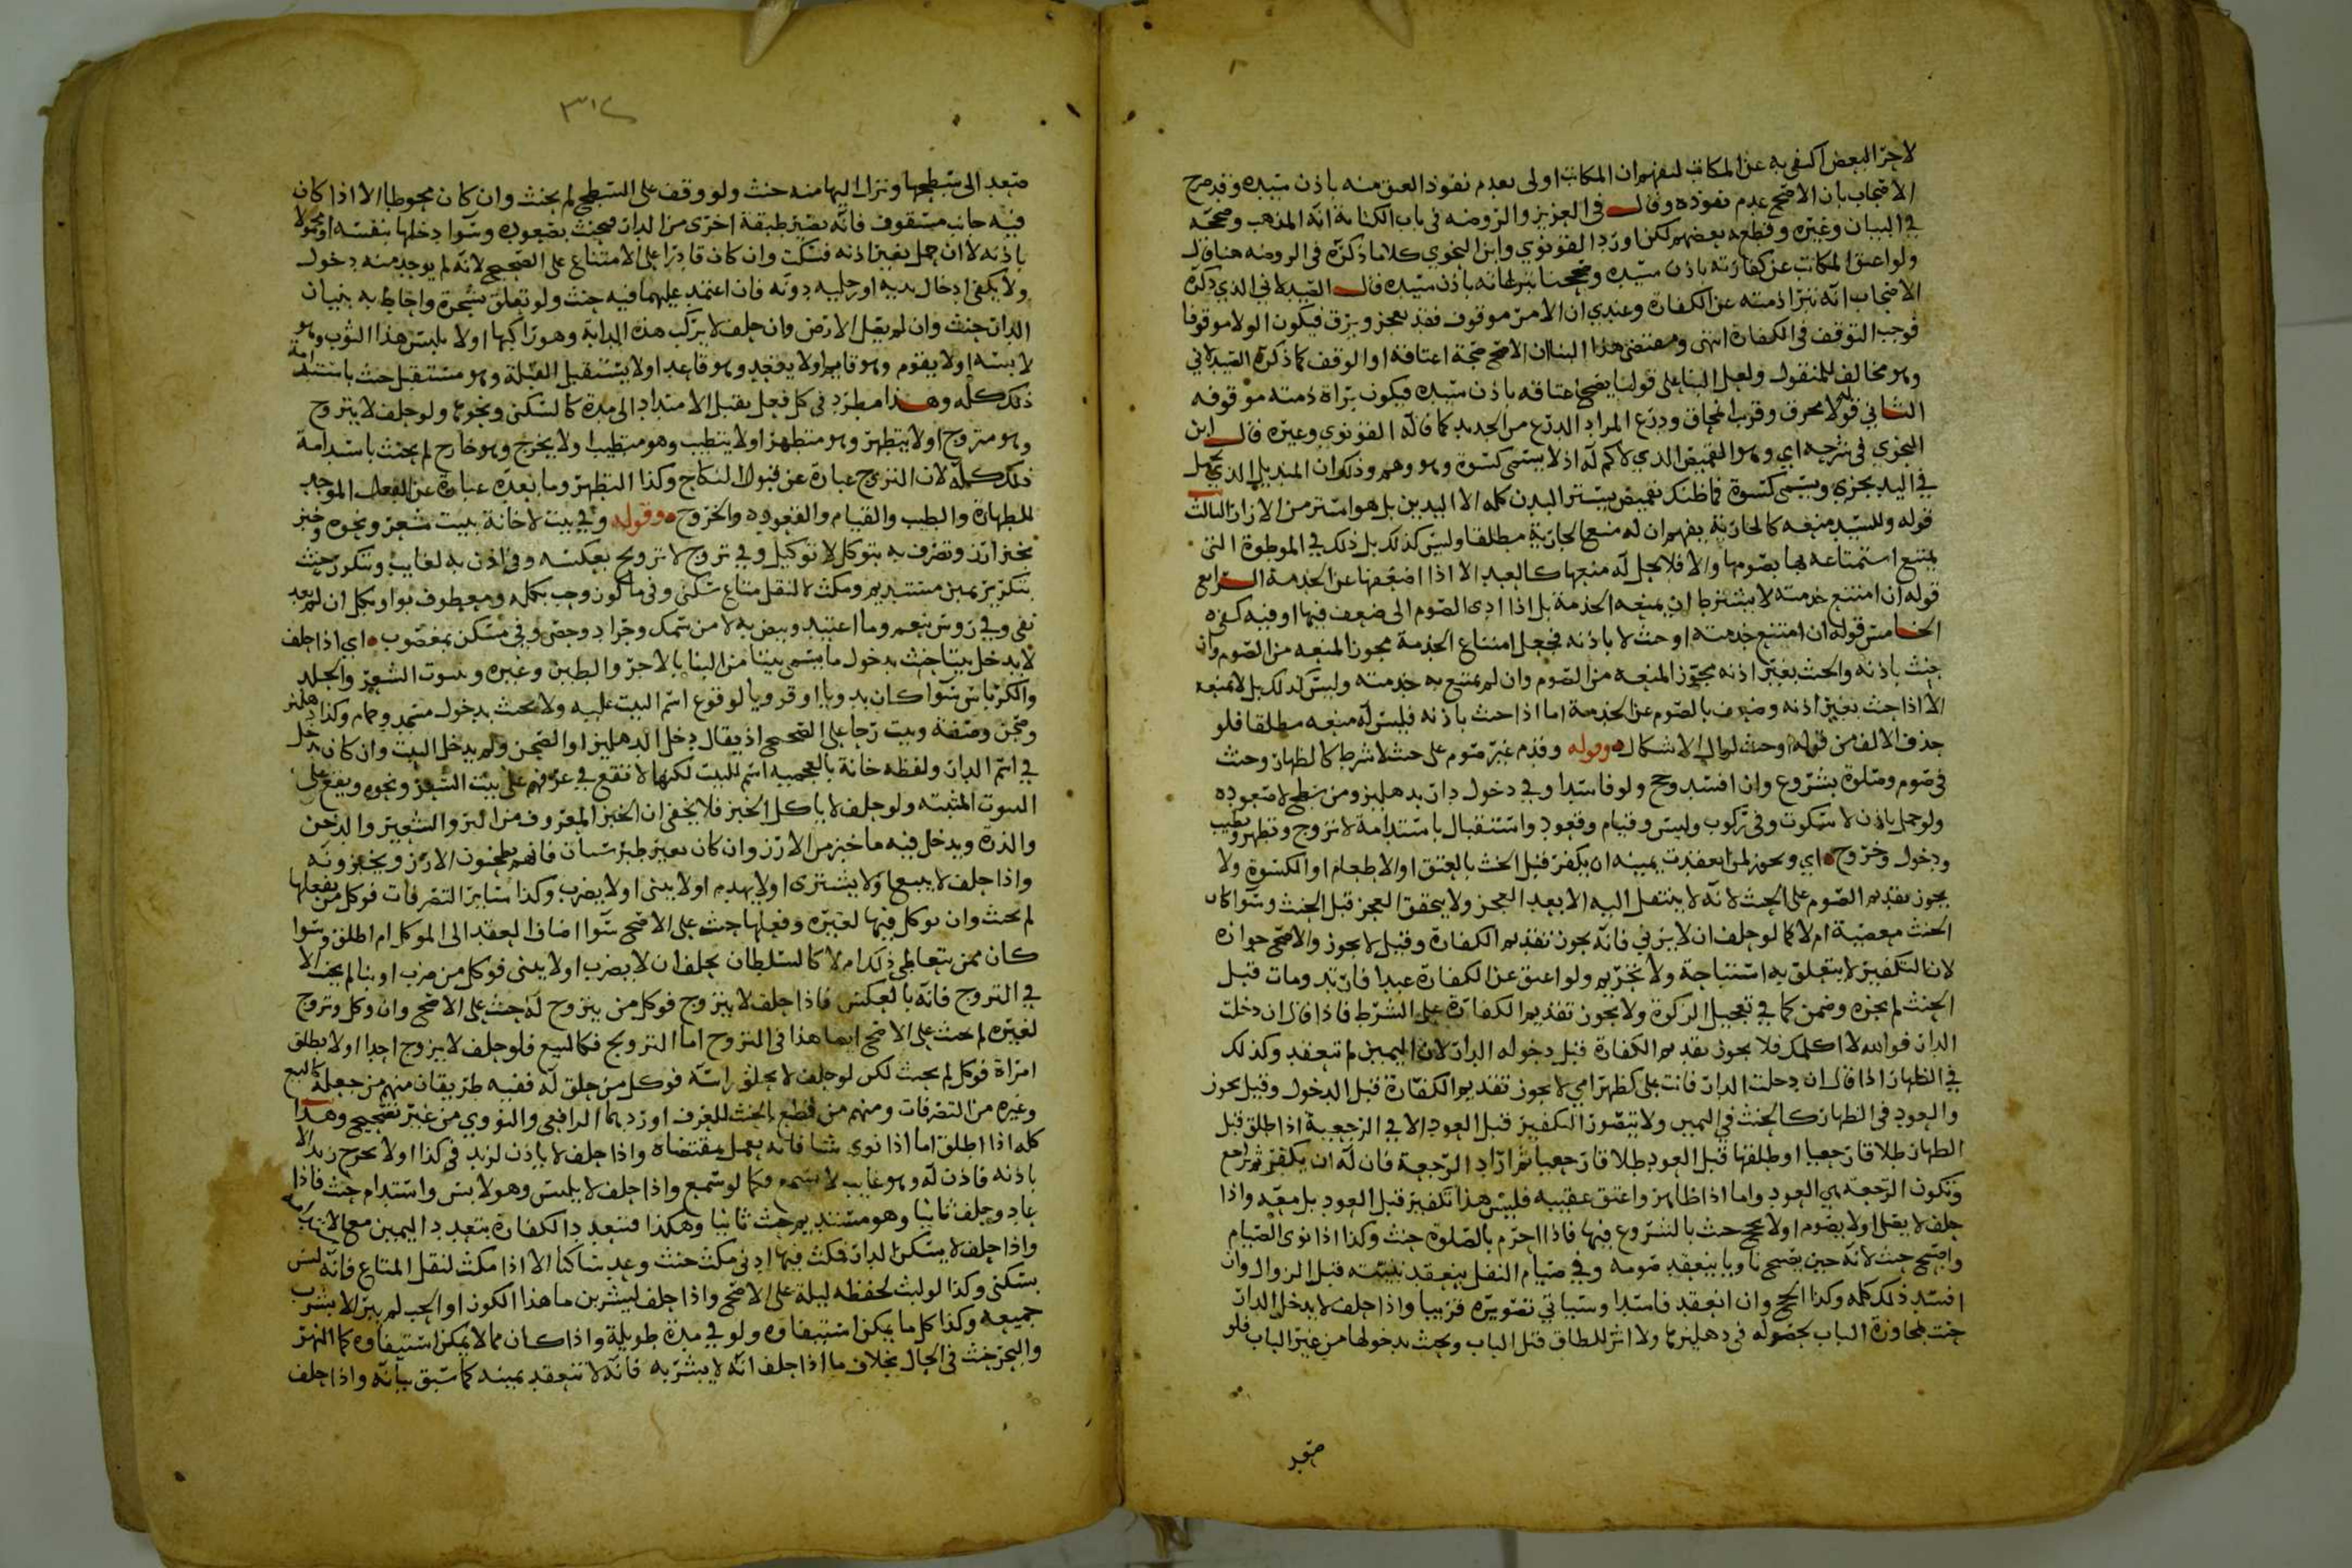 لاجزا البعض اكتفى به عن المكاتب لنفهم ان المكاتب اولى بعدم نفوذ العتق منه باذن سيده وقد صرح
الاصحاب بان الاصح عدم نفوذه وقال في العزيز والروضه في باب الكتابة انه المذهب وصححه
في البيان وغيره وقطع به بعضهم لكن اورد القونوي وابن النحوي كلاما ذكره في الروضه هنا قال
ولو اعتق المكاتب عن كفارته باذن سيده وصححنا تبرعاته باذن سيده قال الصيدلاني الذي ذكره
الاصحاب انه تبرا ذمته عن الكفارة وعندي ان الامر موقوف فقد يعجز ويرق فيكون الولا موقوفا
فوجب التوقف في الكفارة انتهى ومقتضى هذا البنا ان الاصح صحة اعتاقه او الوقف كما ذكره الصيدلاني
وهو مخالف للمنقول ولعل البنا على قولنا يصح اعتاقه باذن سيده فيكون براة ذمته موقوفه
الثاني قوله لا محرق وقرب انمحاق ودرع المراد الدرع من الحديد كما قاله القونوي وغيره قال ابن
النحوي في شرحه اي وهو القميص الذي لاكم له اذ لا يسمى كسوة وهو وهم وذلك ان المنديل الذي يحمل
في اليد يجزي ويسمى كسوة فما ظنك بقميص يستر البدن كله الا اليدين بل هو استر من الازار الثالث
قوله وللسيد منعه كالجارية يفهم ان له منع الجارية مطلقا وليس كذلك بل ذلك في الموطوة التي
يمتنع استمتاعه بها بصومها والا فلا يحل له منعها كالعبد الا اذا اضعفها عن الخدمة الرابع
قوله ان امتنع خدمته لا يشترط ان يمنعه الخدمة بل اذا ادى الصوم الى ضعف فيها او فيه كفى
الخامس قوله ان امتنع خدمته او حنث لا باذنه فجعل امتناع الخدمة مجوز المنعه من الصوم وان
حنث باذنه والحنث بغير اذنه مجوز المنعه من الصوم وان لم يمتنع به خدمته وليس كذلك بل لا يمنعه
الا اذا حنث بغير اذنه وضعف بالصوم عن الخدمة اما اذا حنث باذنه فليس له منعه مطلقا فلو
حذف الالف من قوله اوحنث لزال الاشكال وقوله وقدم غير صوم على حنث لا شرط كالظهار وحنث
في صوم وصلوة بشروع وان افسد وحج ولو فاسدا وفي دخول دار بدهليز ومن سطح لا صعوده
ولو حمل باذن لا سكوت وفي ركوب ولبس وقيام وقعود واستقبال باستدامة لا تزوج وتطهر وتطيب
ودخول وخروج اي ويجوز لمن انعقدت يمينه ان يكفر قبل الحنث بالعتق او الاطعام او الكسوة ولا
يجوز تقديم الصوم على الحنث لانه لا ينتقل اليه الا بعد العجز ولا يتحقق العجز قبل الحنث وسوا كان
الحنث معصية ام لا كما لو حلف ان لا يزني فانه يجوز تقديم الكفارة وقيل لا يجوز والاصح جوازه
لان التكفير لا يتعلق به استباحة ولا تحريم ولو اعتق عن الكفارة عبدا فارتد ومات قبل
الحنث لم يجزه وضمن كما في تعجيل الزكوة ولا يجوز تقديم الكفارة على الشرط فاذا قال ان دخلت
الدار فوالله لا اكلمك فلا يجوز تقديم الكفارة قبل دخوله الدار لان اليمين لم تنعقد وكذلك
في الظهار اذا قال ان دخلت الدار فانت علي كظهر امي لا يجوز تقديم الكفارة قبل الدخول وقيل يجوز
والعود في الظهار كالحنث في اليمين ولا يتصور التكفير قبل العود الا في الرجعية اذا طلق قبل
الظهار طلاقا رجعيا او طلقها قبل العود طلاقا رجعيا ثم اراد الرجعة فان له ان يكفر ثم يراجع
وتكون الرجعة هي العود واما اذا ظاهر واعتق عقيبه فليس هذا تكفير قبل العود بل معه واذا
حلف لا يصلي او لا يصوم او لا يحج حنث بالشروع فيها فاذا احرم بالصلوة حنث وكذا اذا نوى الصيام
واصبح حنث لانه حين يصبح ناويا ينعقد صومه وفي صيام النفل ينعقد بنيته قبل الزوال وان
افسد ذلك كله وكذا الحج وان انعقد فاسدا وسياتي تصويره قريبا واذا حلف لا يدخل الدار
حنث بمجاوزة الباب بحصوله في دهليزها ولا اثر للطاق قبل الباب ويحنث بدخولها من غير الباب فلو
صعد
٣١٤
صعد الى سطحها ونزل اليها منه حنث ولو وقف على السطح لم يحنث وان كان محوطا الا اذا كان
فيه جانب مسقوف فانه يصير طبقة اخرى من الدار فيحنث بصعوده وسوا دخلها بنفسه او محمولا
باذنه لا ان حمل بغير اذنه فسكت وان كان قادرا على الامتناع على الصحيح لانه لم يوجد منه دخول
ولا يكفي ادخال يديه او رجليه دونه فان اعتمد عليهما فيه حنث ولو تعلق بشجرة واحاط به بنيان
الدار حنث وان لم يصل الارض وان حلف لا يركب هذه الدابة وهو راكبها او لا يلبس هذا الثوب وهو
لابسه او لا يقوم وهو قايم او لا يقعد وهو قاعد او لا يستقبل القبلة وهو مستقبل حنث باستدامة
ذلك كله وهذا مطرد في كل فعل يقبل الامتداد الى مدة كالسكنى ونحوها ولو حلف لا يتزوج
وهو متزوج او لا يتطهر وهو متطهر او لا يتطيب وهو متطيب او لا يخرج وهو خارج لم يحنث باستدامة
ذلك كله لان التزوج عبارة عن قبول النكاح وكذا التطهر وما بعده عبارة عن الفعل الموجب
للطهارة والطيب والقيام والقعود والخروج وقوله وفي بيت لا خانة بيت شعر ونحوه وخبز
بخبز ارز وتصرف به بتوكل لا توكيل وفي تزوج لا تزويج بعكسه وفي اذن به لغايب وتتكرر حنث
بتكرير يمين مستديم ومكث لا لنقل متاع سكنى وفي ما كوز وجب بكله ومعطوف بواو بكل ان لم يعد
نفي وفي روس بنعم وما اعتيد وبيض به لا من سمك وجراد وخص وفي مسكن بمغصوب اي اذا حلف
لا يدخل بيتا حنث بدخول ما يسمى بيتا من البنا بالاجر والطين وغيره وبيوت الشعر والجلد
والكرباس سوا كان بدويا او قرويا لوقوع اسم البيت عليه ولا يحنث بدخول مسجد وحمام وكذا دهليز
وصحن وصفة وبيت رحا على الصحيح اذ يقال دخل الدهليز او الصحن ولم يدخل البيت وان كان دخل
في اسم الدار ولفظه خانة بالعجميه اسم للبيت لكنها لا تقع في عرفهم على بيت الشعر ونحوه ويقع على
البيوت المثبته ولو حلف لا ياكل الخبز فلا يخفى ان الخبز المعروف من البر والشعير والدخن
والذرة ويدخل فيه ما خبز من الارز وان كان بغير طبرستان فانهم يطحنون الارز ويخبزونه
واذا حلف لا يبيع او لا يشتري او لا يهدم او لا يبني او لا يضرب وكذا ساير التصرفات فوكل من يفعلها
لم يحنث وان توكل فيها لغيره وفعلها حنث على الاصح سوا اضاف العقد الى الموكل ام اطلق وسوا
كان ممن يتعاطى ذلك ام لا كالسلطان يحلف ان لا يضرب او لا يبني فوكل من ضرب او بنا لم يحنث الا
في التزوج فانه بالعكس فاذا حلف لا يتزوج فوكل من يتزوج له حنث على الاصح وان وكل وتزوج
لغيره لم يحنث على الاصح ايضا هذا في التزوج اما التزويج فكالبيع فلو حلف لا يزوج احدا او لا يطلق
امراة فوكل لم يحنث لكن لو حلف لا يحلق راسه فوكل من حلق له ففيه طريقان منهم من جعله كالبيع
وغيره من التصرفات ومنهم من قطع بالحنث للعرف اوردهما الرافعي والنووي من غير تصحيح وهذا
كله اذا اطلق اما اذا نوى شيا فانه يعمل بمقتضاه واذا حلف لا ياذن لزيد في كذا او لا يخرج زيد الا
باذنه فاذن له وهو غايب لا يسمع فكما لو سمع واذا حلف لا يلبس وهو لابس واستدام حنث فاذا
عاد وحلف ثانيا وهو مستديم حنث ثانيا وهكذا فتتعدد الكفارة بتعدد اليمين مع الاستدامة
واذا حلف لا يسكن الدار فمكث فيها ادنى مكث حنث وعد ساكنا الا اذا مكث لنقل المتاع فانه ليس
بسكنى وكذا لو لبث لحفظه ليلة على الاصح واذا حلف ليشربن ما هذا الكوز او الجب لم يبر الا بشرب
جميعه وكذا كل ما يمكن استيفاوه ولو في مدة طويلة واذا كان مما لا يمكن استيفاوه كما النهر
والبحر حنث في الحال بخلاف ما اذا حلف انه لا يشربه فانه لا تنعقد يمينه كما سبق بيانه واذا حلف